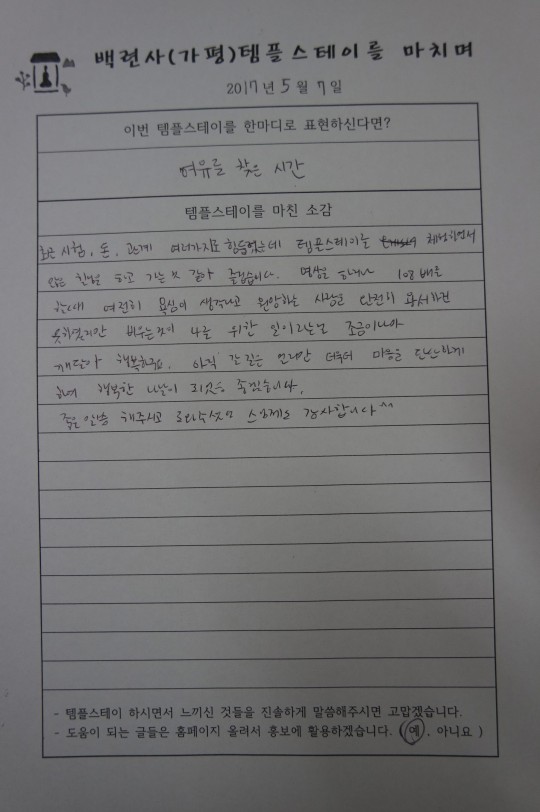 백련사(가평)템플스테이를 마치며
2017년 5월 7일
이번 템플스테이를 한마디로 표현하신다면?
여유를 찾은 시간
템플스테이를 마친 소감
최근 시험, 돈, 관계 여러가지로 힘들었는데 템플스테이를 체험하면서
많은 힐링 하고 가는 것 같아 좋았습니다. 명상을 하거나 108배를
할때 여전히 욕심이 생각나고 원망하는 사람을 단전히 용서하진
못하겠지만 비우는것이 나를 위한 일이라는걸 조금이나마
깨달아 행복하구요. 아직 갈 길은 머지만 더욱더 마음을 단단하게
하여 행복한 나날이 되었음 좋겠습니다.
좋은 말씀 해주시고 스님께도 감사합니다^^
- 템플스테이 하시면서 느끼신 것들을 진솔하게 말씀해주시면 고맙겠습니다.
- 도움이 되는 글들은 홈페이지 올려서 홍보에 활용하겠습니다. ( 예, 아니요 )